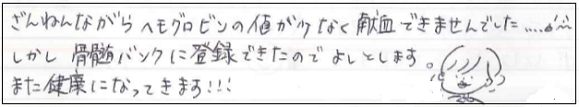 ざんねんながら ヘモグロビンの値が少なく献血できませんでした.....
しかし 骨髄バンクに登録できたので よしとします
また健康になってきます!!!